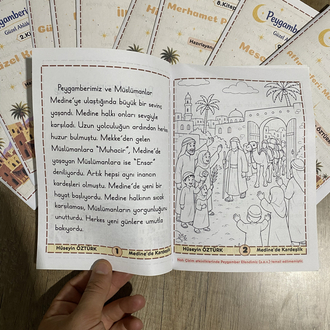 Peygamberimiz ve Müslümanlar
Medine'ye ulaştığında büyük bir sevinç
yaşandı. Medine halkı onları sevgiyle
karşıladı. Uzun yolculuğun ardından herkes
huzur bulmuştu. Mekke'den gelen
Müslümanlara "Muhacir", Medine'de
yaşayan Müslümanlara ise "Ensar"
denilirdi. Artık hepsi aynı inancın
kardeşleri olmuştu. Medine'de yeni bir
hayat başlıyordu. Medine halkının sıcak
karşılaması, Müslümanların yorgunluğunu
unutturdu. Herkes yeni günlere umutla
bakıyordu.
Hüseyin ÖZTÜRK
1
Medine'de Kardeşlik
Hüseyin ÖZTÜRK
2
Medine'de Kardeşlik
Peygamberi
Güzel Ahlak
2.Kitap
Merhamet P
Hazırlayan
6.Kitap
Peygamb